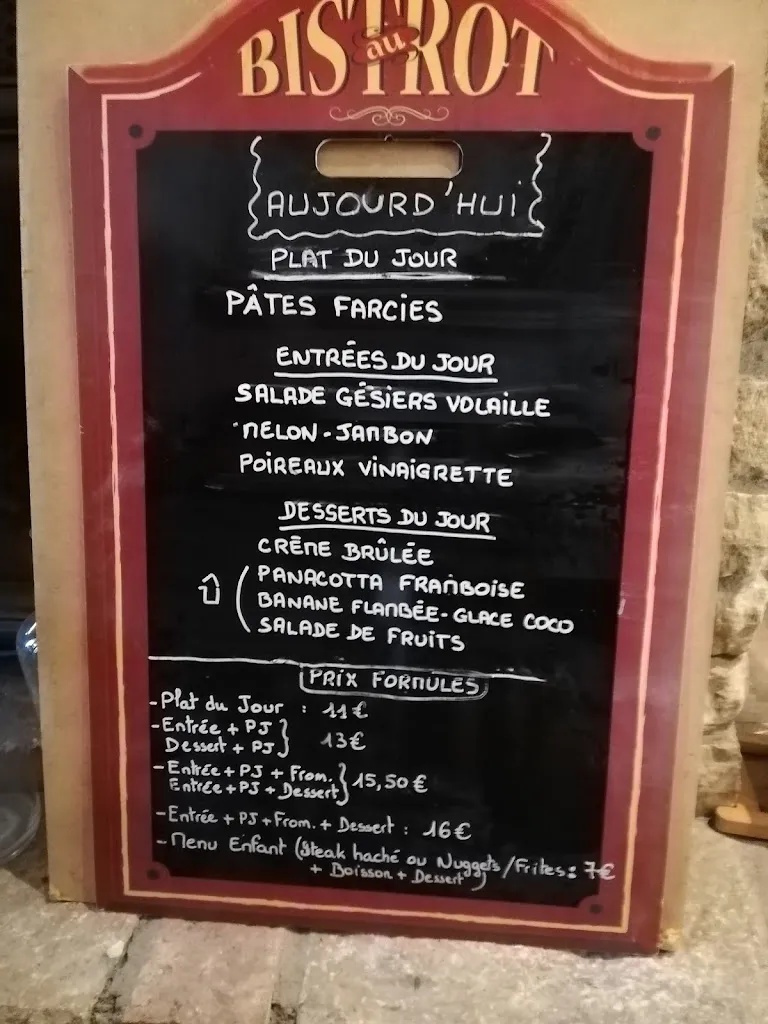 BISTROT
au
AUJOURD'HUI
PLAT DU JOUR
PÂTES FARCIES
ENTRÉES DU JOUR
SALADE GÉSIERS VOLAILLE
MELON-JAMBON
POIREAUX VINAIGRETTE
DESSERTS DU JOUR
CRÊME BRÛLÉE
PANACOTTA FRAMBOISE
BANANE FLAMBÉE-GLACE COCO
SALADE DE FRUITS
PRIX FORMULES
-Plat du Jour : 11€
-Entrée + PJ
Dessert + PJ } 13€
-Entrée + PJ + From.
Entrée + PJ + Dessert } 15,50€
-Entrée + PJ + From. + Dessert : 16€
-Menu Enfant (Steak haché ou Nuggets/Frites : 7€
+ Boisson + Dessert)